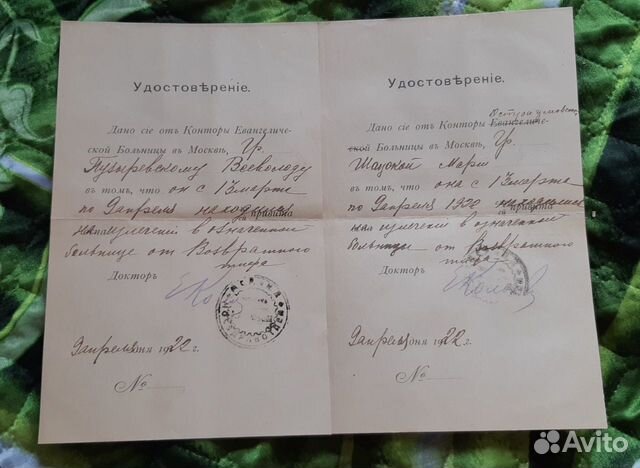 Удостовѣреніе.
Дано сіе отъ Конторы Евангеличе-
ской Больницы въ Москвѣ, Гр.
Пузыревскому Всеволоду
въ томъ, что онъ с 13 марта
по 9 апреля находился
на излечении в означенной
больнице от Возвратного
тифа
Докторъ
9 апреля 1922 г.
№
Удостовѣреніе.
Дано сіе отъ Конторы Евангеличе-
ской Больницы въ Москвѣ, Гр.
Шацкой Марии
въ томъ, что она с 13 марта
по 9 апреля 1920 находилась
на излечении в означенной
больнице от Возвратного
тифа
Докторъ
9 апреля 1922 г.
№
Avito